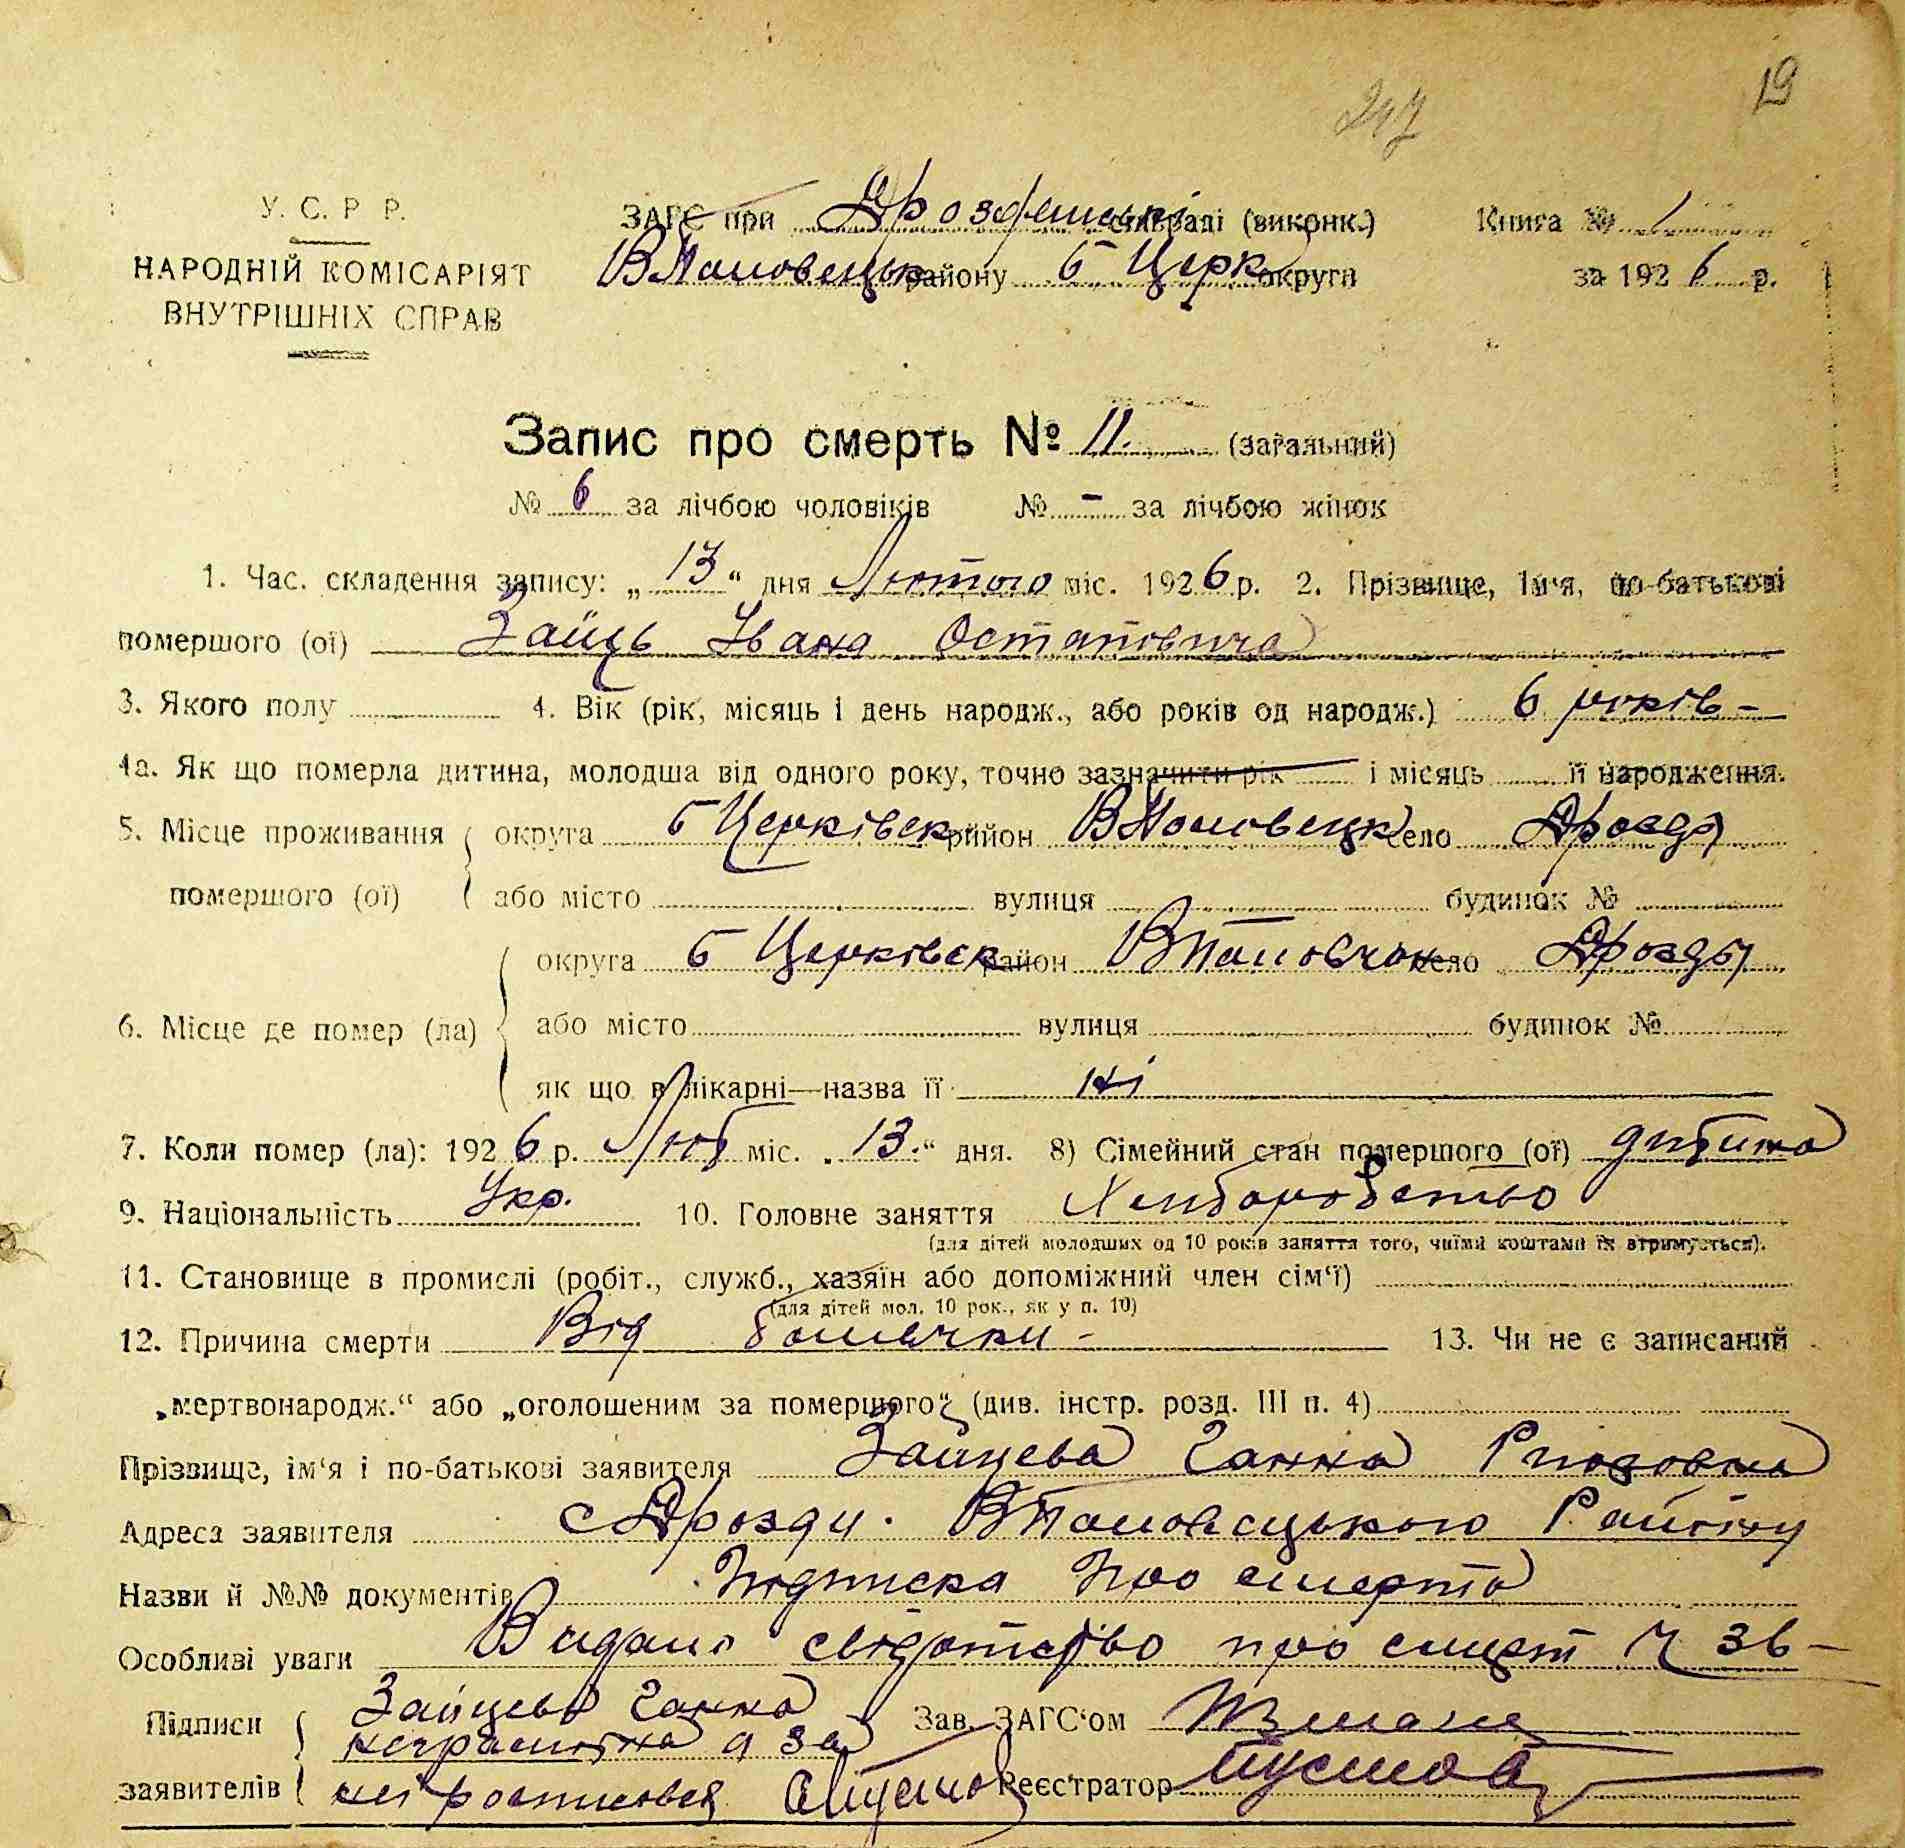 19
247
У. С. Р Р.
НАРОДНІЙ КОМІСАРІЯТ
ВНУТРІШНІХ СПРАВ
ЗАГС при Дрозденські сільраді (виконк.)
Книга № 1
ВПоловецьк району Б Церк округи
за 1926 р.
Запис про смерть № 11. (загальний)
№ 6 за лічбою чоловіків № - за лічбою жінок
1. Час. складення запису: „13“ дня Лютого міс. 1926 р. 2. Прізвище, ім'я, по-батькові
помершого (ої) Заїць Івана Остаповича
3. Якого полу 4. Вік (рік, місяць і день народж., або років од народж.) 6 років -
4а. Як що померла дитина, молодша від одного року, точно зазначити рік і місяць її народження.
5. Місце проживання округа Б Церківськ район ВПоловецьк село Дрозди
помершого (ої) або місто вулиця будинок №
округа Б Церківськ район ВПоловецьк село Дрозди
6. Місце де помер (ла) або місто вулиця будинок №
як що в лікарні—назва її ні
7. Коли помер (ла): 1926 р. Лют міс. „13.“ дня. 8) Сімейний стан помершого (ої) дитина
9. Національність Укр. 10. Головне заняття Хлиборобство
(для дітей молодших од 10 років заняття того, чиїми коштами їх втримується).
11. Становище в промислі (робіт., служб., хазяїн або допоміжний член сім'ї)
(для дітей мол. 10 рок., як у п. 10)
12. Причина смерти Від болячки - 13. Чи не є записаний
„мертвонародж.“ або „оголошеним за помершого“ (див. інстр. розд. III п. 4)
Прізвище, ім'я і по-батькові заявителя Зайцева Ганна
Адреса заявителя с Дрозди. ВПоловецького Району
Назви й №№ документів Підписка про смерть
Особливі уваги Видано свідотство про смерт Ч 36 -
Підписи Зайцева Ганна
неграмотна а за Зав. ЗАГС'ом
заявителів неї росписався Реєстратор